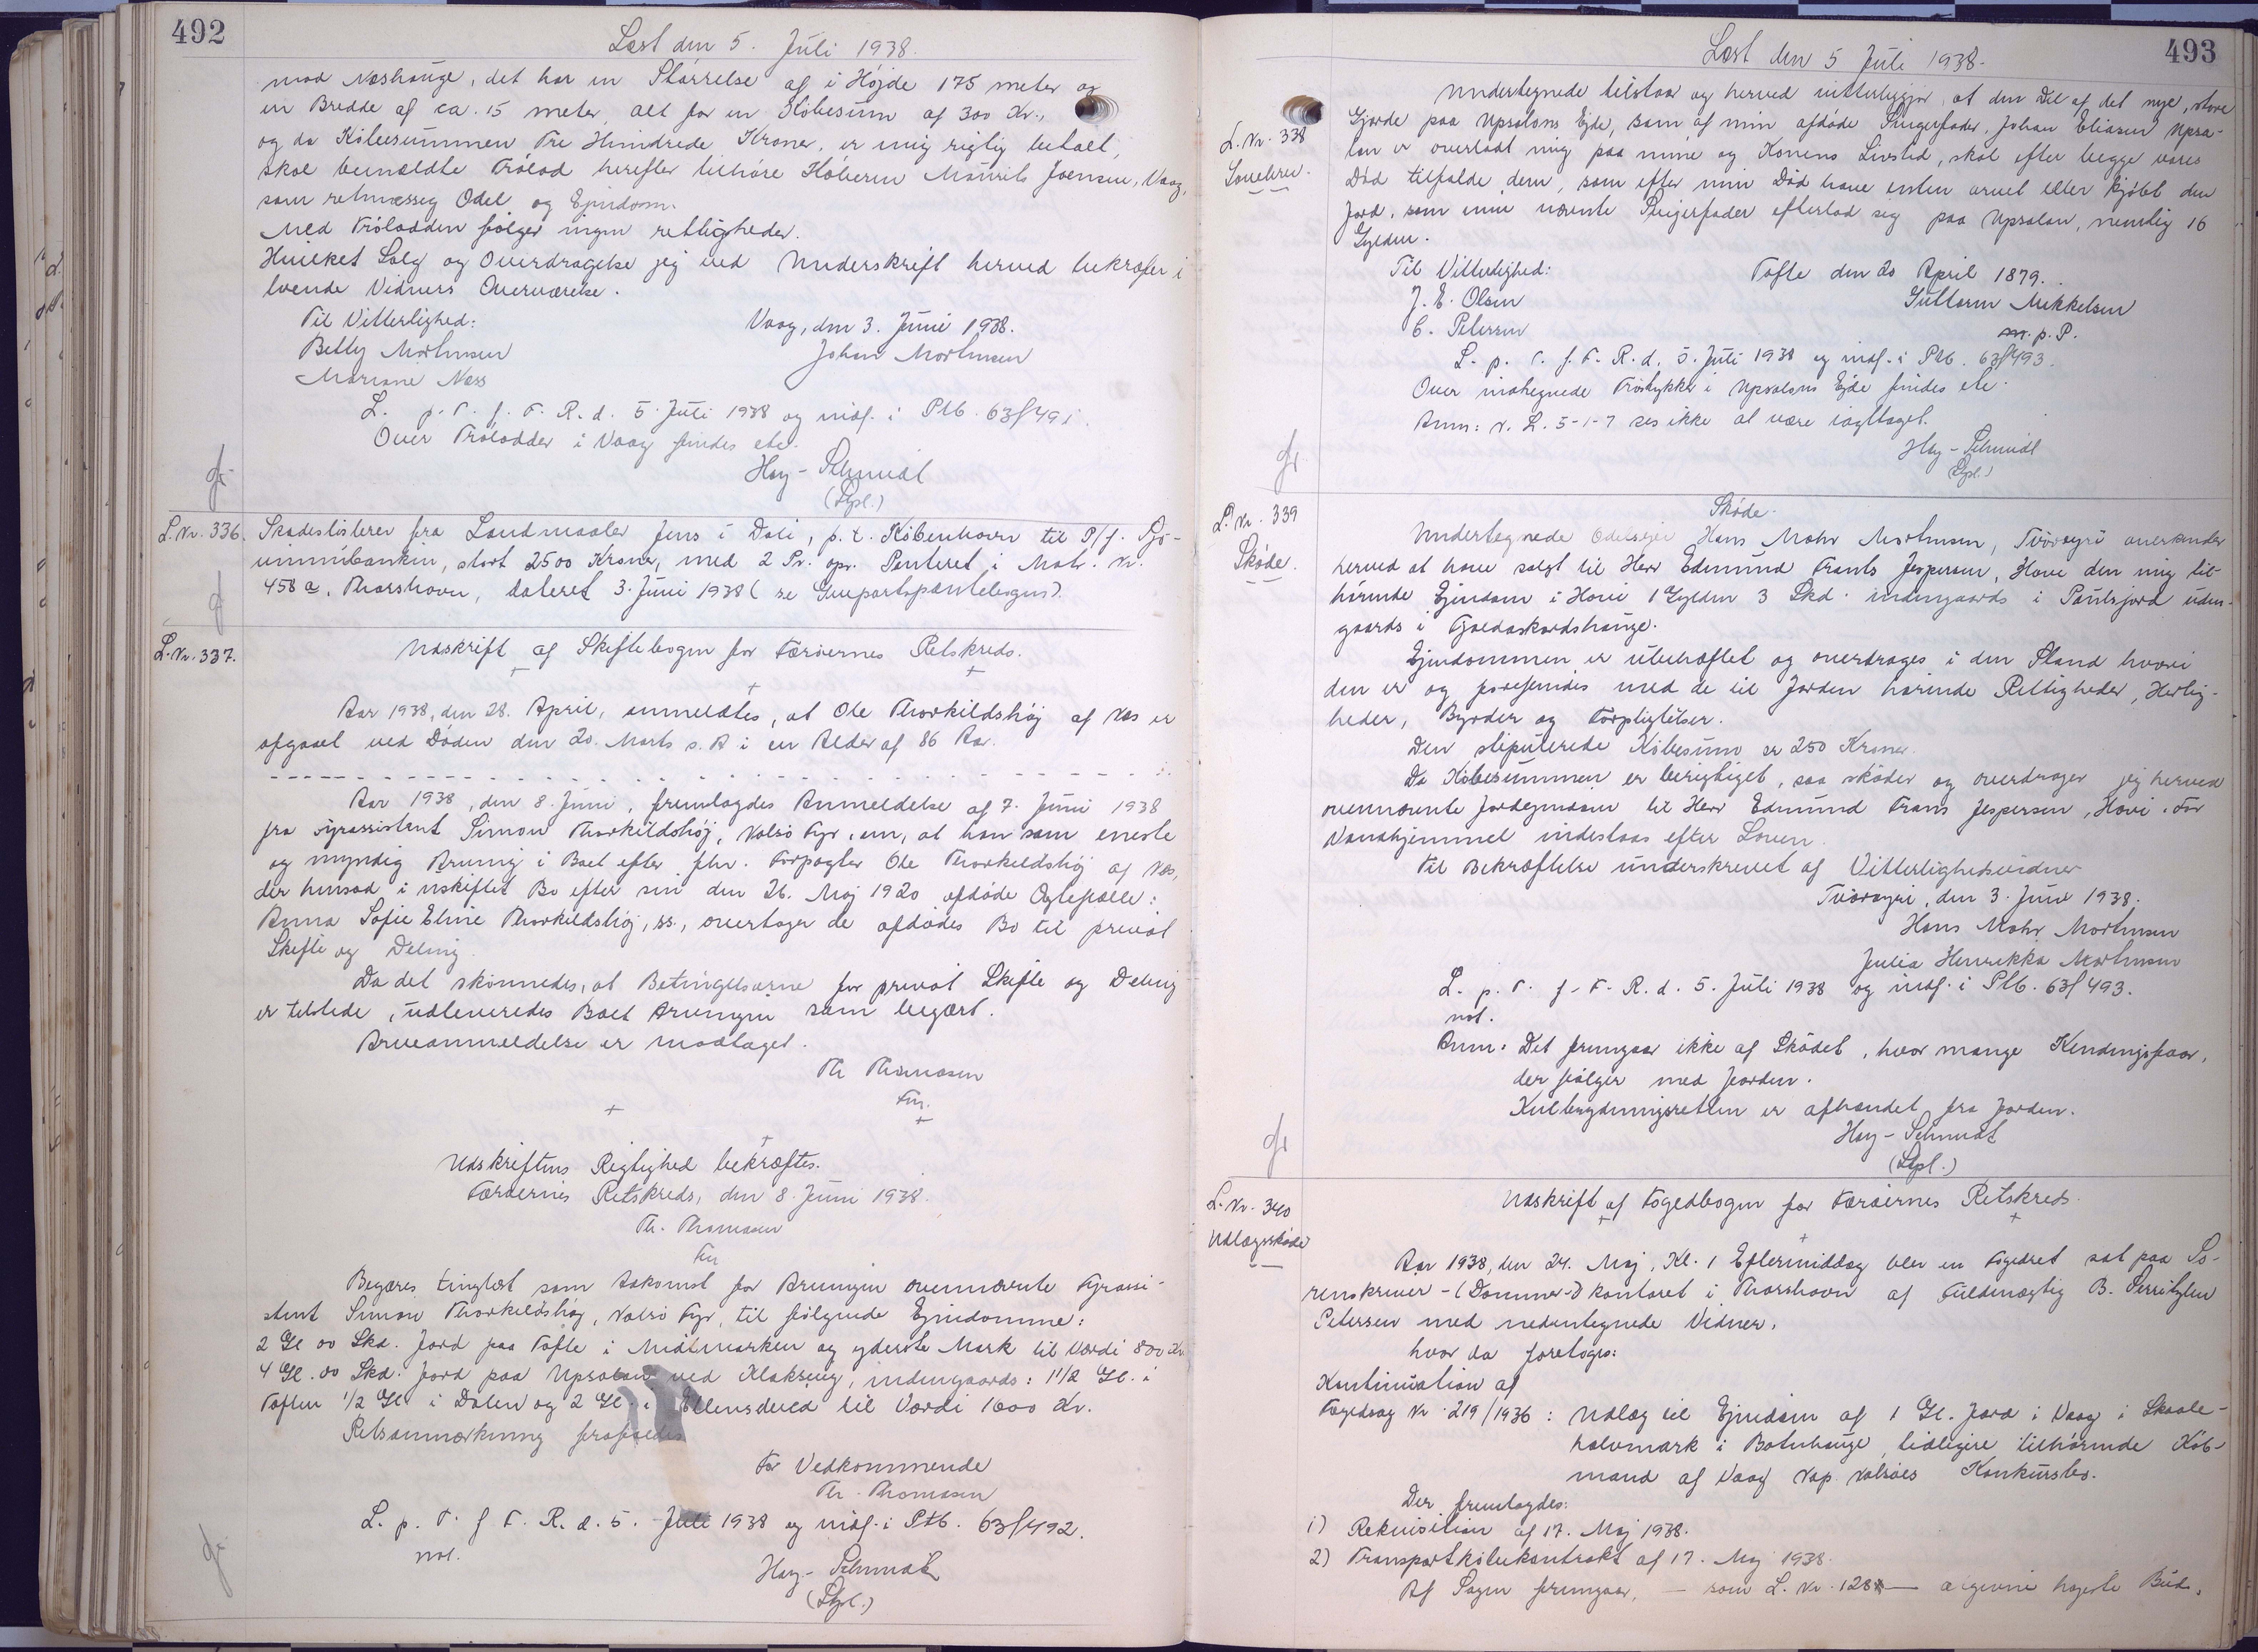 492
Læst den 5. Juli 1938.
mod Næshauge, det har en Størrelse af i Højde 175 meter og
en Bredde af ca. 15 meter, alt for en Købesum af 300 Kr.,
og da Købesummen Tre Hundrede Kroner, er mig rigtig betalt,
skal bemeldte Trølod herefter tilhøre Køberen Maurits Joensen, Vaag,
som retmæssig Odel og Ejendom.
Med Trøladden følger ingen rettigheder.
Hvilket Salg og Overdragelse jeg ved Underskrift herved bekræfter i
tvende Vidners Overværelse.
Til Vitterlighed:
Vaag, den 3. Juni 1938.
Betty Mortensen
Johan Mortensen
Mariane Næss
L. p. T. f. F. R. d. 5. Juli 1938 og indf. i Ptb. 63f491.
Over Trøladder i Vaag findes etc.
Hay-Schmidt
(Dpl.)
L. Nr. 336.
Skadesløsbrev fra Landmaaler Jens i Dali, p. t. København til P/f. Sjó-
vinnubankin, stort 2500 Kroner, med 2 Pr. opr. Panteret i Matr. nr.
458 a, Thorshavn, dateret 3. Juni 1938 (se Genpartspantebogen).
L. Nr. 337.
Udskrift af Skiftebogen for Færøernes Retskreds.
Aar 1938, den 28. April, anmeldtes, at Ole Thorkildshøj af Næs er
afgaaet ved Døden den 20. Marts s. A i en Alder af 86 Aar.
Aar 1938, den 8. Juni, fremlagdes Anmeldelse af 7. Juni 1938
fra Fyrassistent Simon Thorkildshøj, Nolsø Fyr, om, at han som eneste
og myndig Arving i Boet efter fhv. Forpagter Ole Thorkildshøj af Næs,
der hensad i uskiftet Bo efter sin den 26. Maj 1920 afdøde Ægtefælle:
Anna Sofie Eline Thorkildshøj, ss., overtager de afdødes Bo til privat
Skifte og Deling.
Da det skønnedes, at Betingelserne for privat Skifte og Deling
er tilstede, udleveredes Boet Arvingen som begært.
Arveanmeldelse er modtaget.
Th Thomasen
Fm.
Udskriftens Rigtighed bekræftes.
Færøernes Retskreds, den 8. Juni 1938.
Th. Thomasen
Fm
Begæres tinglæst som Adkomst for Arvingen ovennævnte Fyrassi-
stent Simon Thorkildshøj, Nolsø Fyr, til følgende Ejendomme:
2 Gl 00 Skd. Jord paa Tofte i Midtmarken og yderste Mark til Værdi 800 Kr.
4 Gl. 00 Skd. Jord paa Upsalan ved Klaksvig, indengaards: 1 1/2 Gl. i
Toften 1/2 Gl i Dalen og 2 Gl. i Ellensdeild til Værdi 1600 Kr.
Retsanmærkning frafaldes
For Vedkommende
Th. Thomasen
L. p. T. f. F. R. d. 5. Juli 1938 og indf. i Ptb. 63f492.
not.
Hay-Schmidt
(Dpl.)
493
Læst den 5 Juli 1938.
L. Nr. 338
Undertegnede tilstaar og herved vitterliggør, at den Del af det nye, store
Gjerde paa Upsalans Ejde, som af min afdøde Svigerfader, Johan Eliasen Upsa-
lan er overladt mig paa mine og Konens Livstid, skal efter begge vores
Død tilfalde dem, som efter min Død have enten arvet eller kjøbt den
Jord, som min nævnte Svigerfader efterlod sig paa Upsalan, nemlig 16
Gylden.
Til Vitterlighed:
Tofte den 20 April 1879.
J. E. Olsen
Guttorm Mikkelsen
C. Petersen
m. p. P.
L. p. T. f. F. R. d. 5. Juli 1938 og indf. i Ptb. 63f493.
Over indhegnede Trøstykker i Upsalans Ejde findes etc.
Anm: N. L. 5-1-7 ses ikke at være iagttaget.
Hay-Schmidt
(Dpl.)
L. Nr. 339
Skøde.
Skøde.
Undertegnede Odelsejer Hans Mohr Mortensen, Tvöroyri anerkender
herved at have solgt til Herr Edmund Frants Jespersen, Hove den mig til-
hørende Ejendom i Hove 1 Gylden 3 Skd. indengaards i Poulsjord uden-
gaards i Gjaldaskardshauge.
Ejendommen er ubehæftet og overdrages i den Stand hvori
den er og forefindes med de til Jorden hørende Rettigheder, Herlig-
heder, Byrder og Forpligtelser.
Den stipulerede Købesum er 250 Kroner.
Da Købesummen er berigtiget, saa skøder og overdrager jeg herved
ovennævnte Jordejendom til Herr Edmund Frans Jespersen, Hovi. For
Vanhjemmel indestaas efter Loven.
Til Bekræftelse underskrevet af Vitterlighedsvidner
Tvöroyri, den 3. Juni 1938.
Hans Mohr Mortensen
Julia Henrikka Mortensen
L. p. T. f. F. R. d. 5. Juli 1938 og indf. i Ptb. 63f493.
not.
Anm: Det fremgaar ikke af Skødet, hvor mange Kendingsfaar,
der følger med Jorden.
Kulbrydningsretten er afhændet fra Jorden.
Hay-Schmidt
(Dpl.)
L. Nr. 340
Udlægsskøde
Udskrift af Fogedbogen for Færøernes Retskreds.
Aar 1938, den 24. Maj, Kl. 1 Eftermiddag blev en Fogedret sat paa So-
renskriver-(Dommer-)kontoret i Thorshavn af Fuldmægtig B. Serritzlew
Petersen med nedentegnede Vidner,
hvor da foretoges:
Kontinuation af
Fogedsag Nr. 219/1936: Udlæg til Ejendom af 1 Gl. Jord i Vaag i Skaale-
halvmark i Botnhauge, tidligere tilhørende Køb-
mand af Vaag Nap. Nolsøes Konkursbo.
Der fremlagdes:
1) Rekvisition af 17. Maj 1938.
2) Transportkøbekontrakt af 17. Maj 1938.
Af Sagen fremgaar, — som L. Nr. 128 — afgivne højeste Bud,